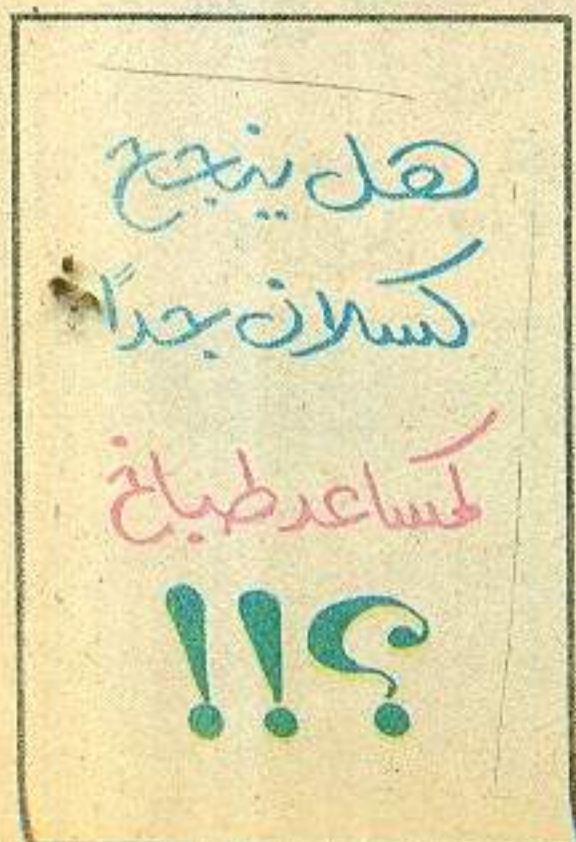 هل ينجح
كسلان جداً
كمساعد طباخ
؟!!